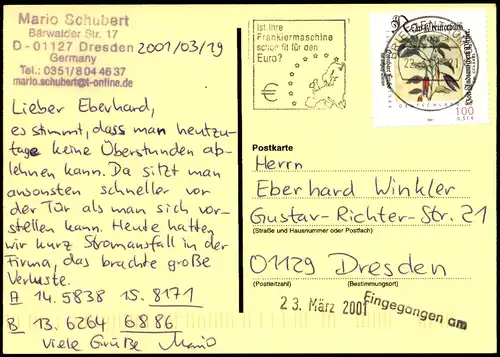 Mario Schubert
Bärwalder Str. 17
D - 01127 Dresden
Germany
Tel.: 0351/8044637
mario.schubert@t-online.de
2001/03/19
Lieber Eberhard,
es stimmt, dass man heutzu-
tage keine Überstunden ab-
lehnen kann. Da sitzt man
ansonsten schneller vor
der Tür als man sich vor-
stellen kann. Heute hatten
wir kurz Stromausfall in der
Firma, das brachte große
Verluste.
A 14. 5838 15. 8171
B 13. 6264 6886
Viele Grüße Mario
Ist Ihre
Frankiermaschine
schon fit für den
Euro?
€
BRIEFZENTRUM
DEUTSCHLAND
100
0,51 €
Postkarte
Herrn
Eberhard Winkler
Gustav-Richter-Str. 21
(Straße und Hausnummer oder Postfach)
01129 Dresden
(Postleitzahl) (Bestimmungsort)
23. März 2001
Eingegangen am